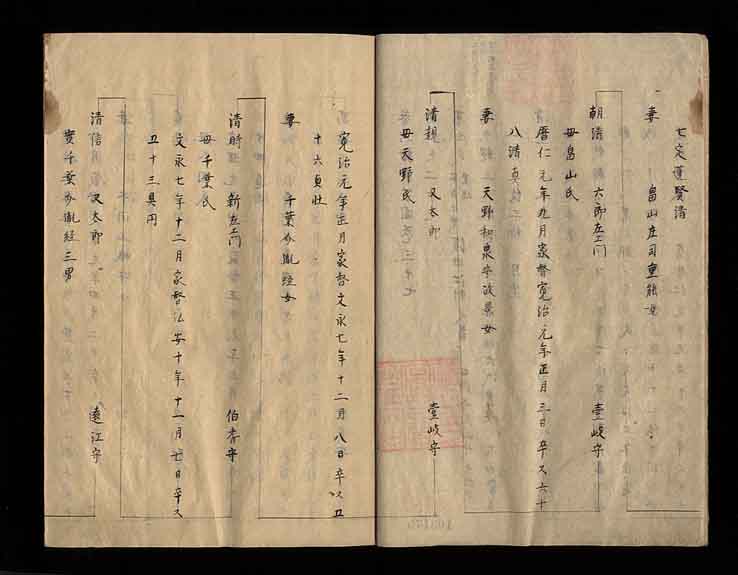 七定蓮賢清
妻 畠山庄司重能女
朝清 六郎左エ門 壹岐守
母畠山氏
暦仁元年九月家督寛治元年正月三日卒ス六十
八清真
妻 天野和泉守政景女
清親 又太郎 壹岐守
母天野氏
寛治元年正月家督文永七年十二月八日卒ス五
十六貞壮
妻 千葉介胤綱女
清時 新左エ門 伯耆守
母千葉氏
文永七年十二月家督弘安十年十一月七日卒ス
五十三具円
清信 又太郎 遠江守
実千葉介胤経三男